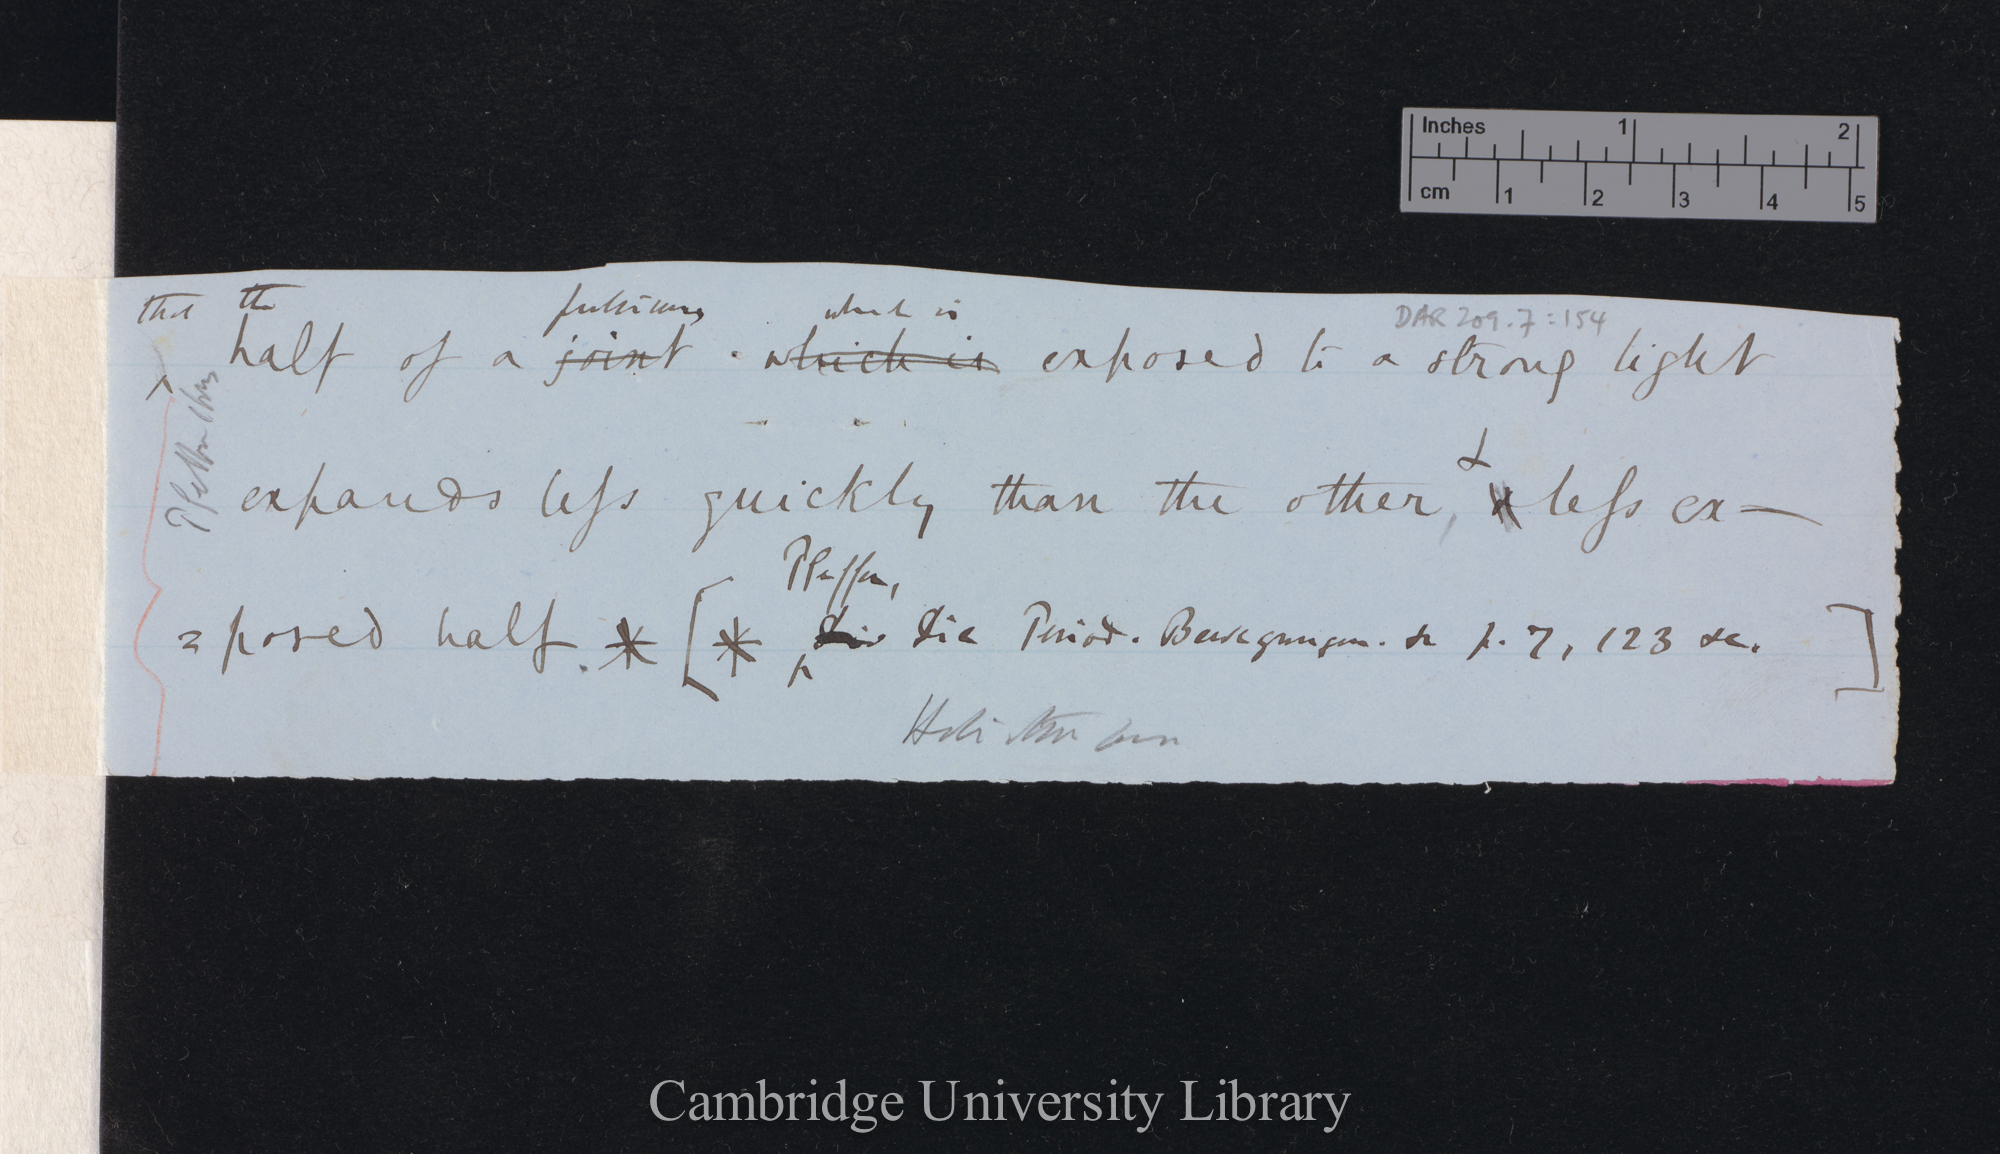 Inches 1 2
cm 1 2 3 4 5
DAR 209.7:154
that the pulvinus which is
half of a joint which is exposed to a strong light
expands less quickly than the other, & less ex—
=posed half. * [* Pfeffer, Die Period. Bewegungen. &c p. 7, 123 &c.]
Cambridge University Library